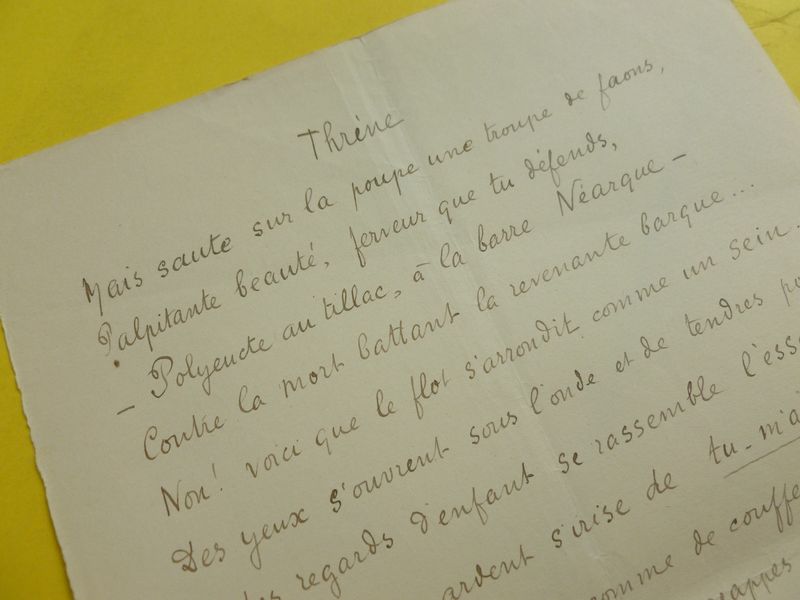 Thrène
Mais saute sur la poupe une troupe de faons,
Palpitante beauté, ferveur que tu défends,
– Polyeucte au tillac, à la barre Néarque –
Contre la mort battant la revenante barque...
Non! voici que le flot s'arrondit comme un sein.
Des yeux s'ouvrent sous l'onde et de tendres
regards d'enfant se rassemble
ardent s'irise de tu-m'ai
comme de